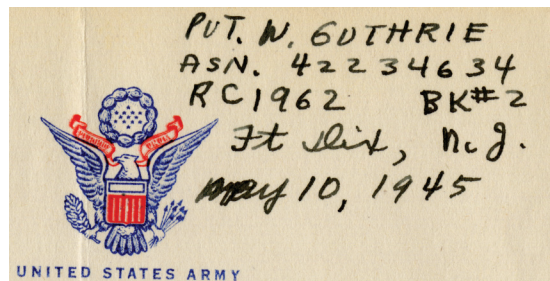 PVT. W. GUTHRIE
ASN. 42234634
RC1962 BK#2
Ft Dix, N.J.
May 10, 1945
UNITED STATES ARMY